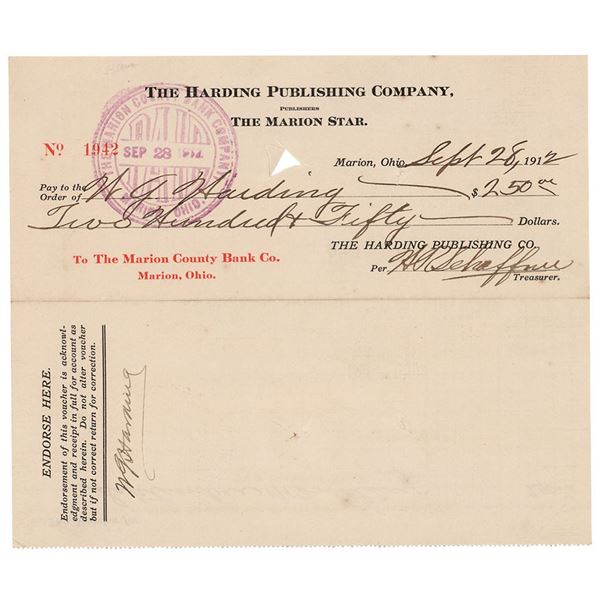 THE HARDING PUBLISHING COMPANY,
PUBLISHERS
THE MARION STAR.
No 1942
THE MARION COUNTY BANK COMPANY
PAID
SEP 28 1912
MARION, OHIO.
Marion, Ohio, Sept 28, 1912
Pay to the
Order of W G Harding $250 00
Two Hundred & Fifty Dollars.
THE HARDING PUBLISHING CO.
To The Marion County Bank Co.
Marion, Ohio.
Per H Schaffner
Treasurer.
ENDORSE HERE.
Endorsement of this voucher is acknowl-
edgment and receipt in full for account as
described herein. Do not alter voucher
but if not correct return for correction.
W G Harding